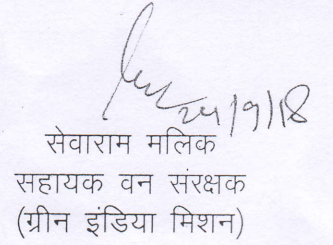 24/9/18
सेवाराम मलिक
सहायक वन संरक्षक
(ग्रीन इंडिया मिशन)